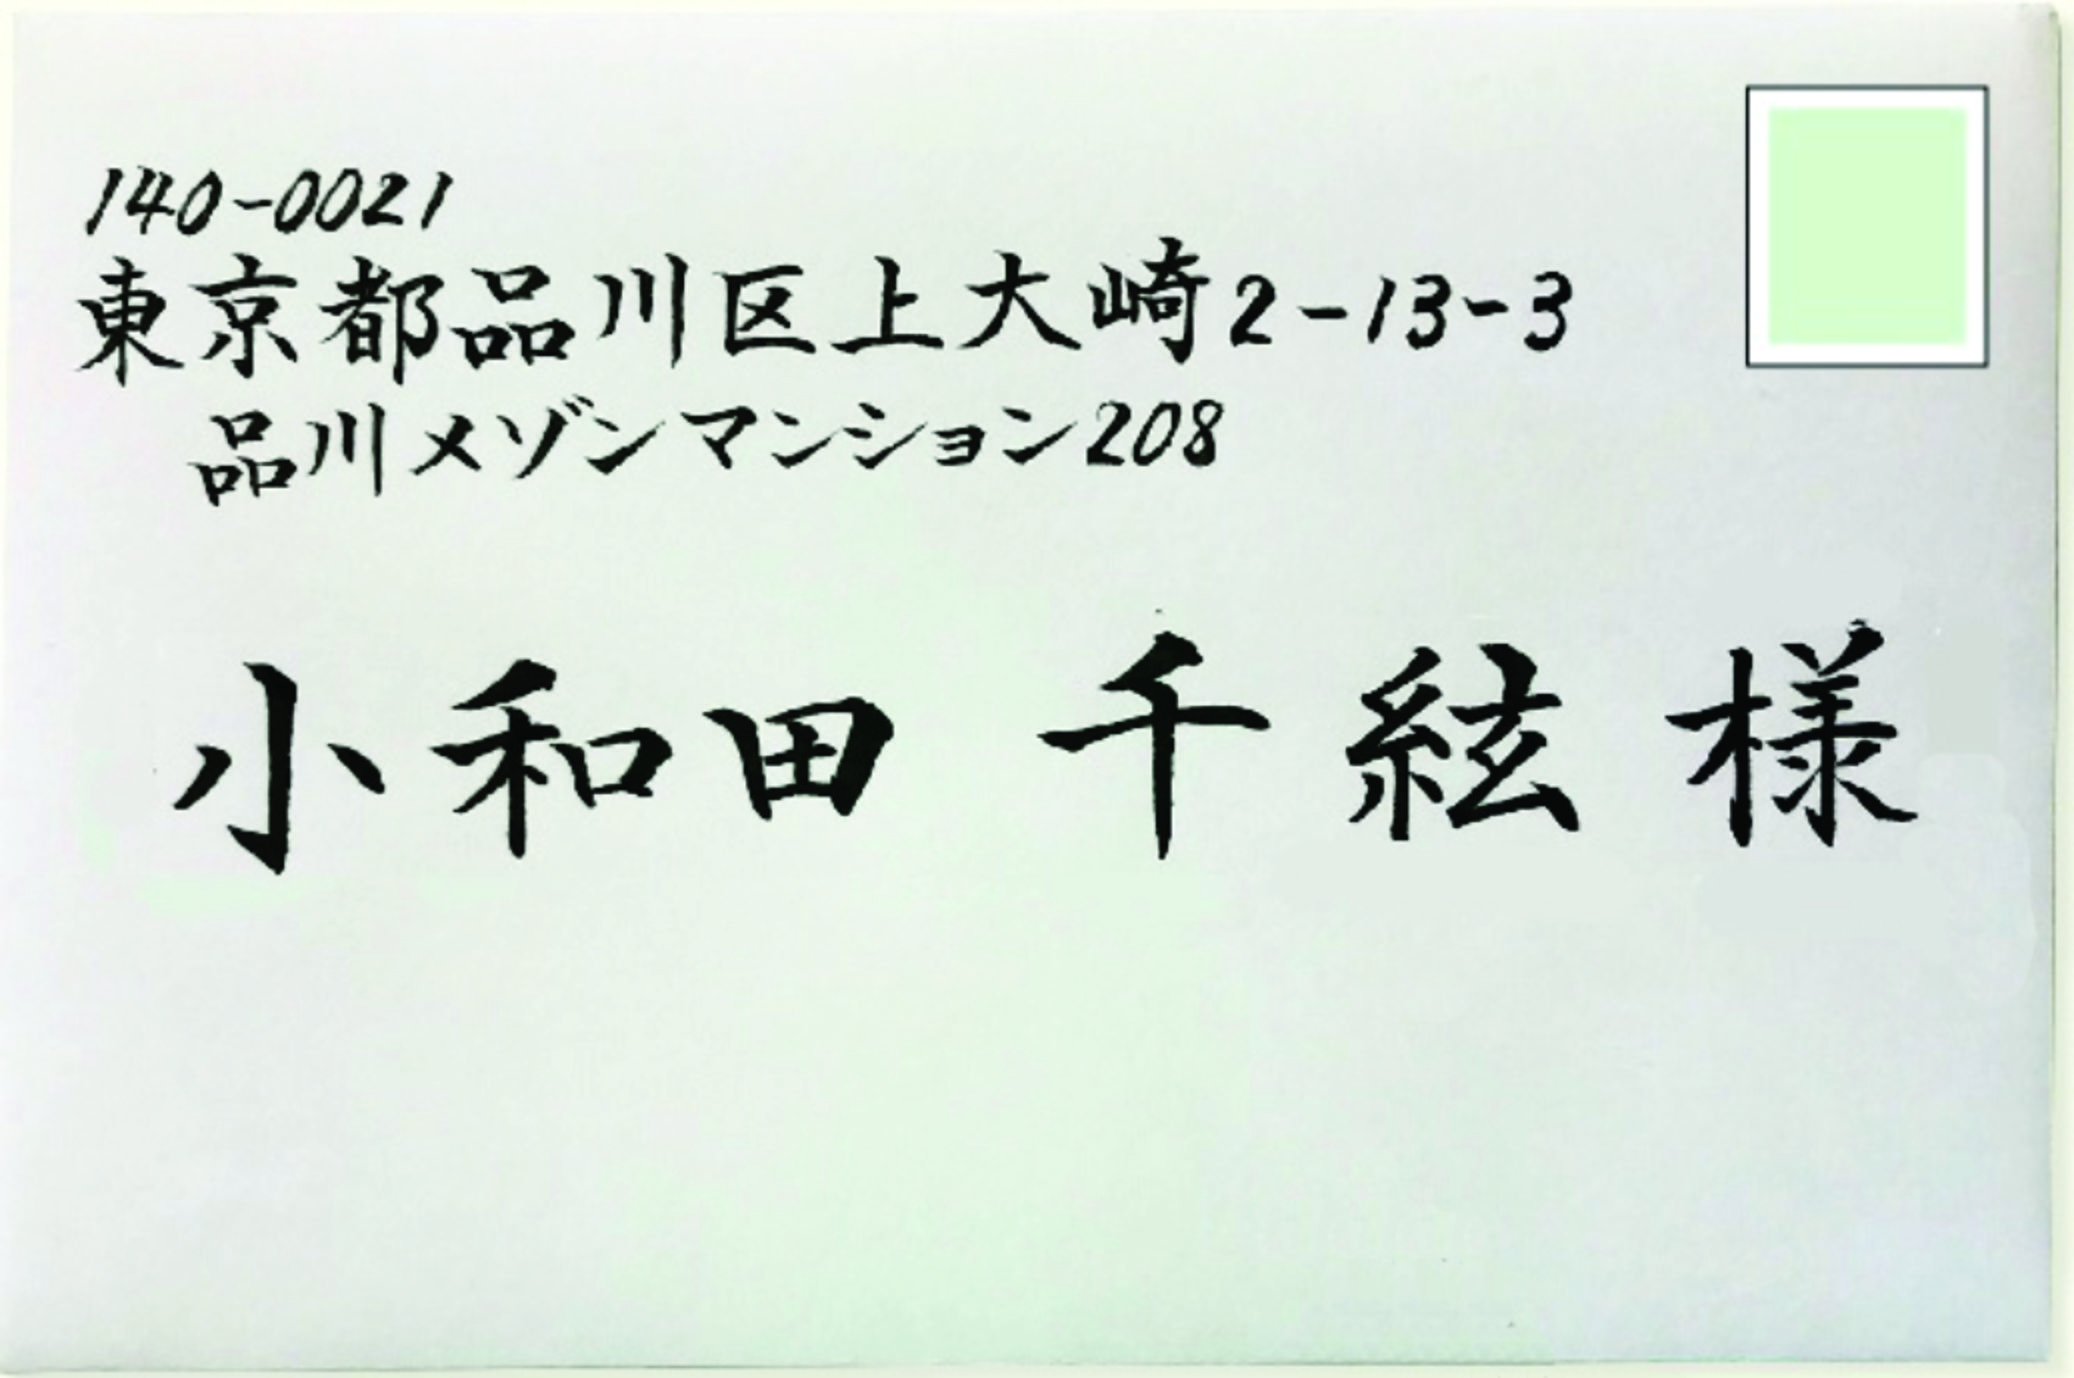 140-0021
東京都品川区上大崎2-13-3
品川メゾンマンション208
小和田 千絃 様